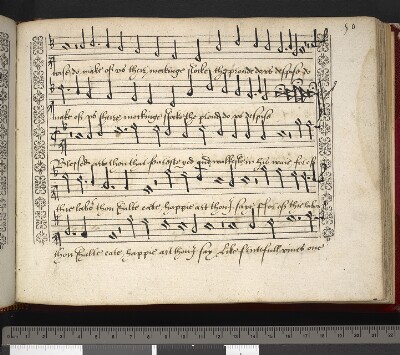 50
wise do make of us their mockinge stocke the proude do us despise do
make of us their mockinge stocke the proud do us despise
Blessed art thou that fearest god and walkest in his waie for of
thie labor thou shalte eate, happie art thou I saye, for of thie labor
thou shalte eate happie art thou I say Like fruitfull vines one